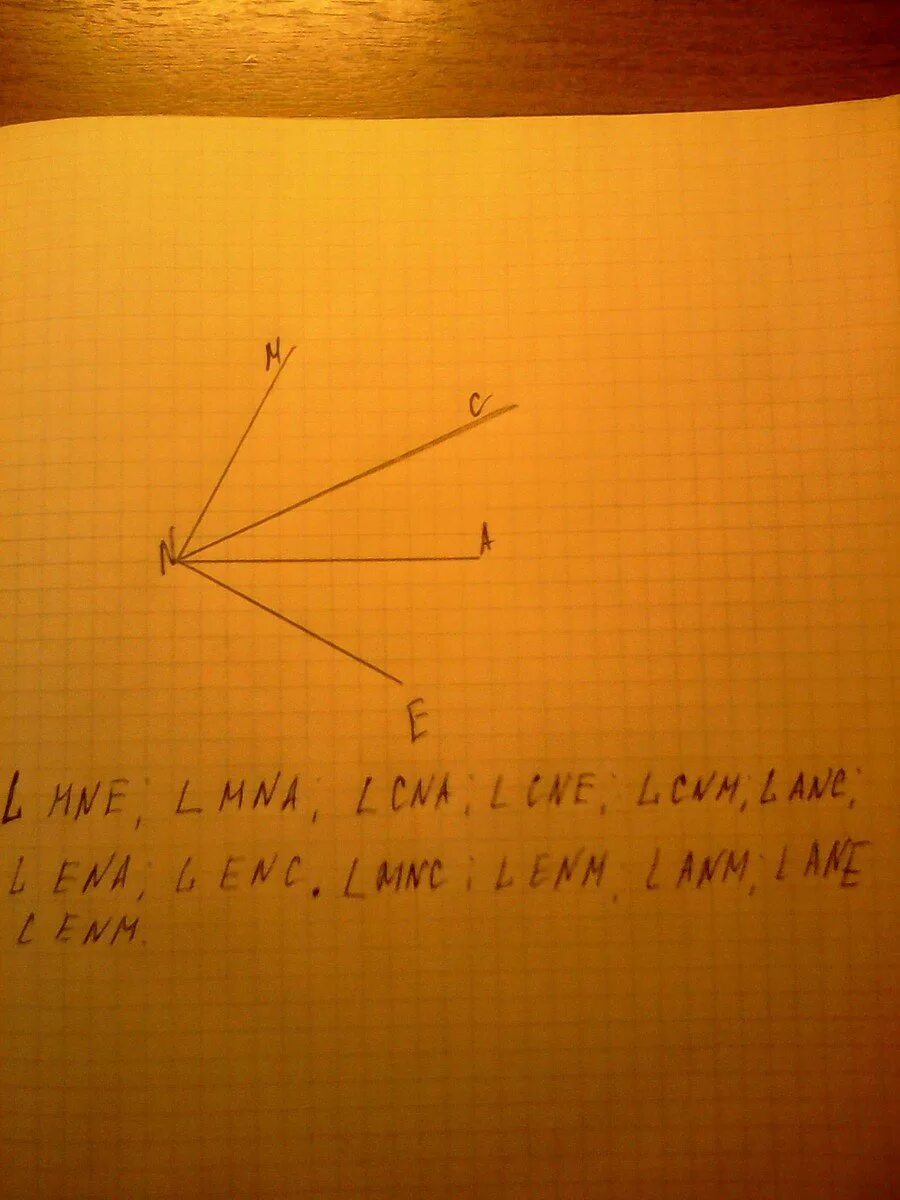 M
C
N
A
E
∠ MNE; ∠ MNA; ∠ CNA; ∠ CNE; ∠ CNM; ∠ ANC;
∠ ENA; ∠ ENC. ∠ MNC; ∠ ENM; ∠ ANM; ∠ ANE
∠ ENM.